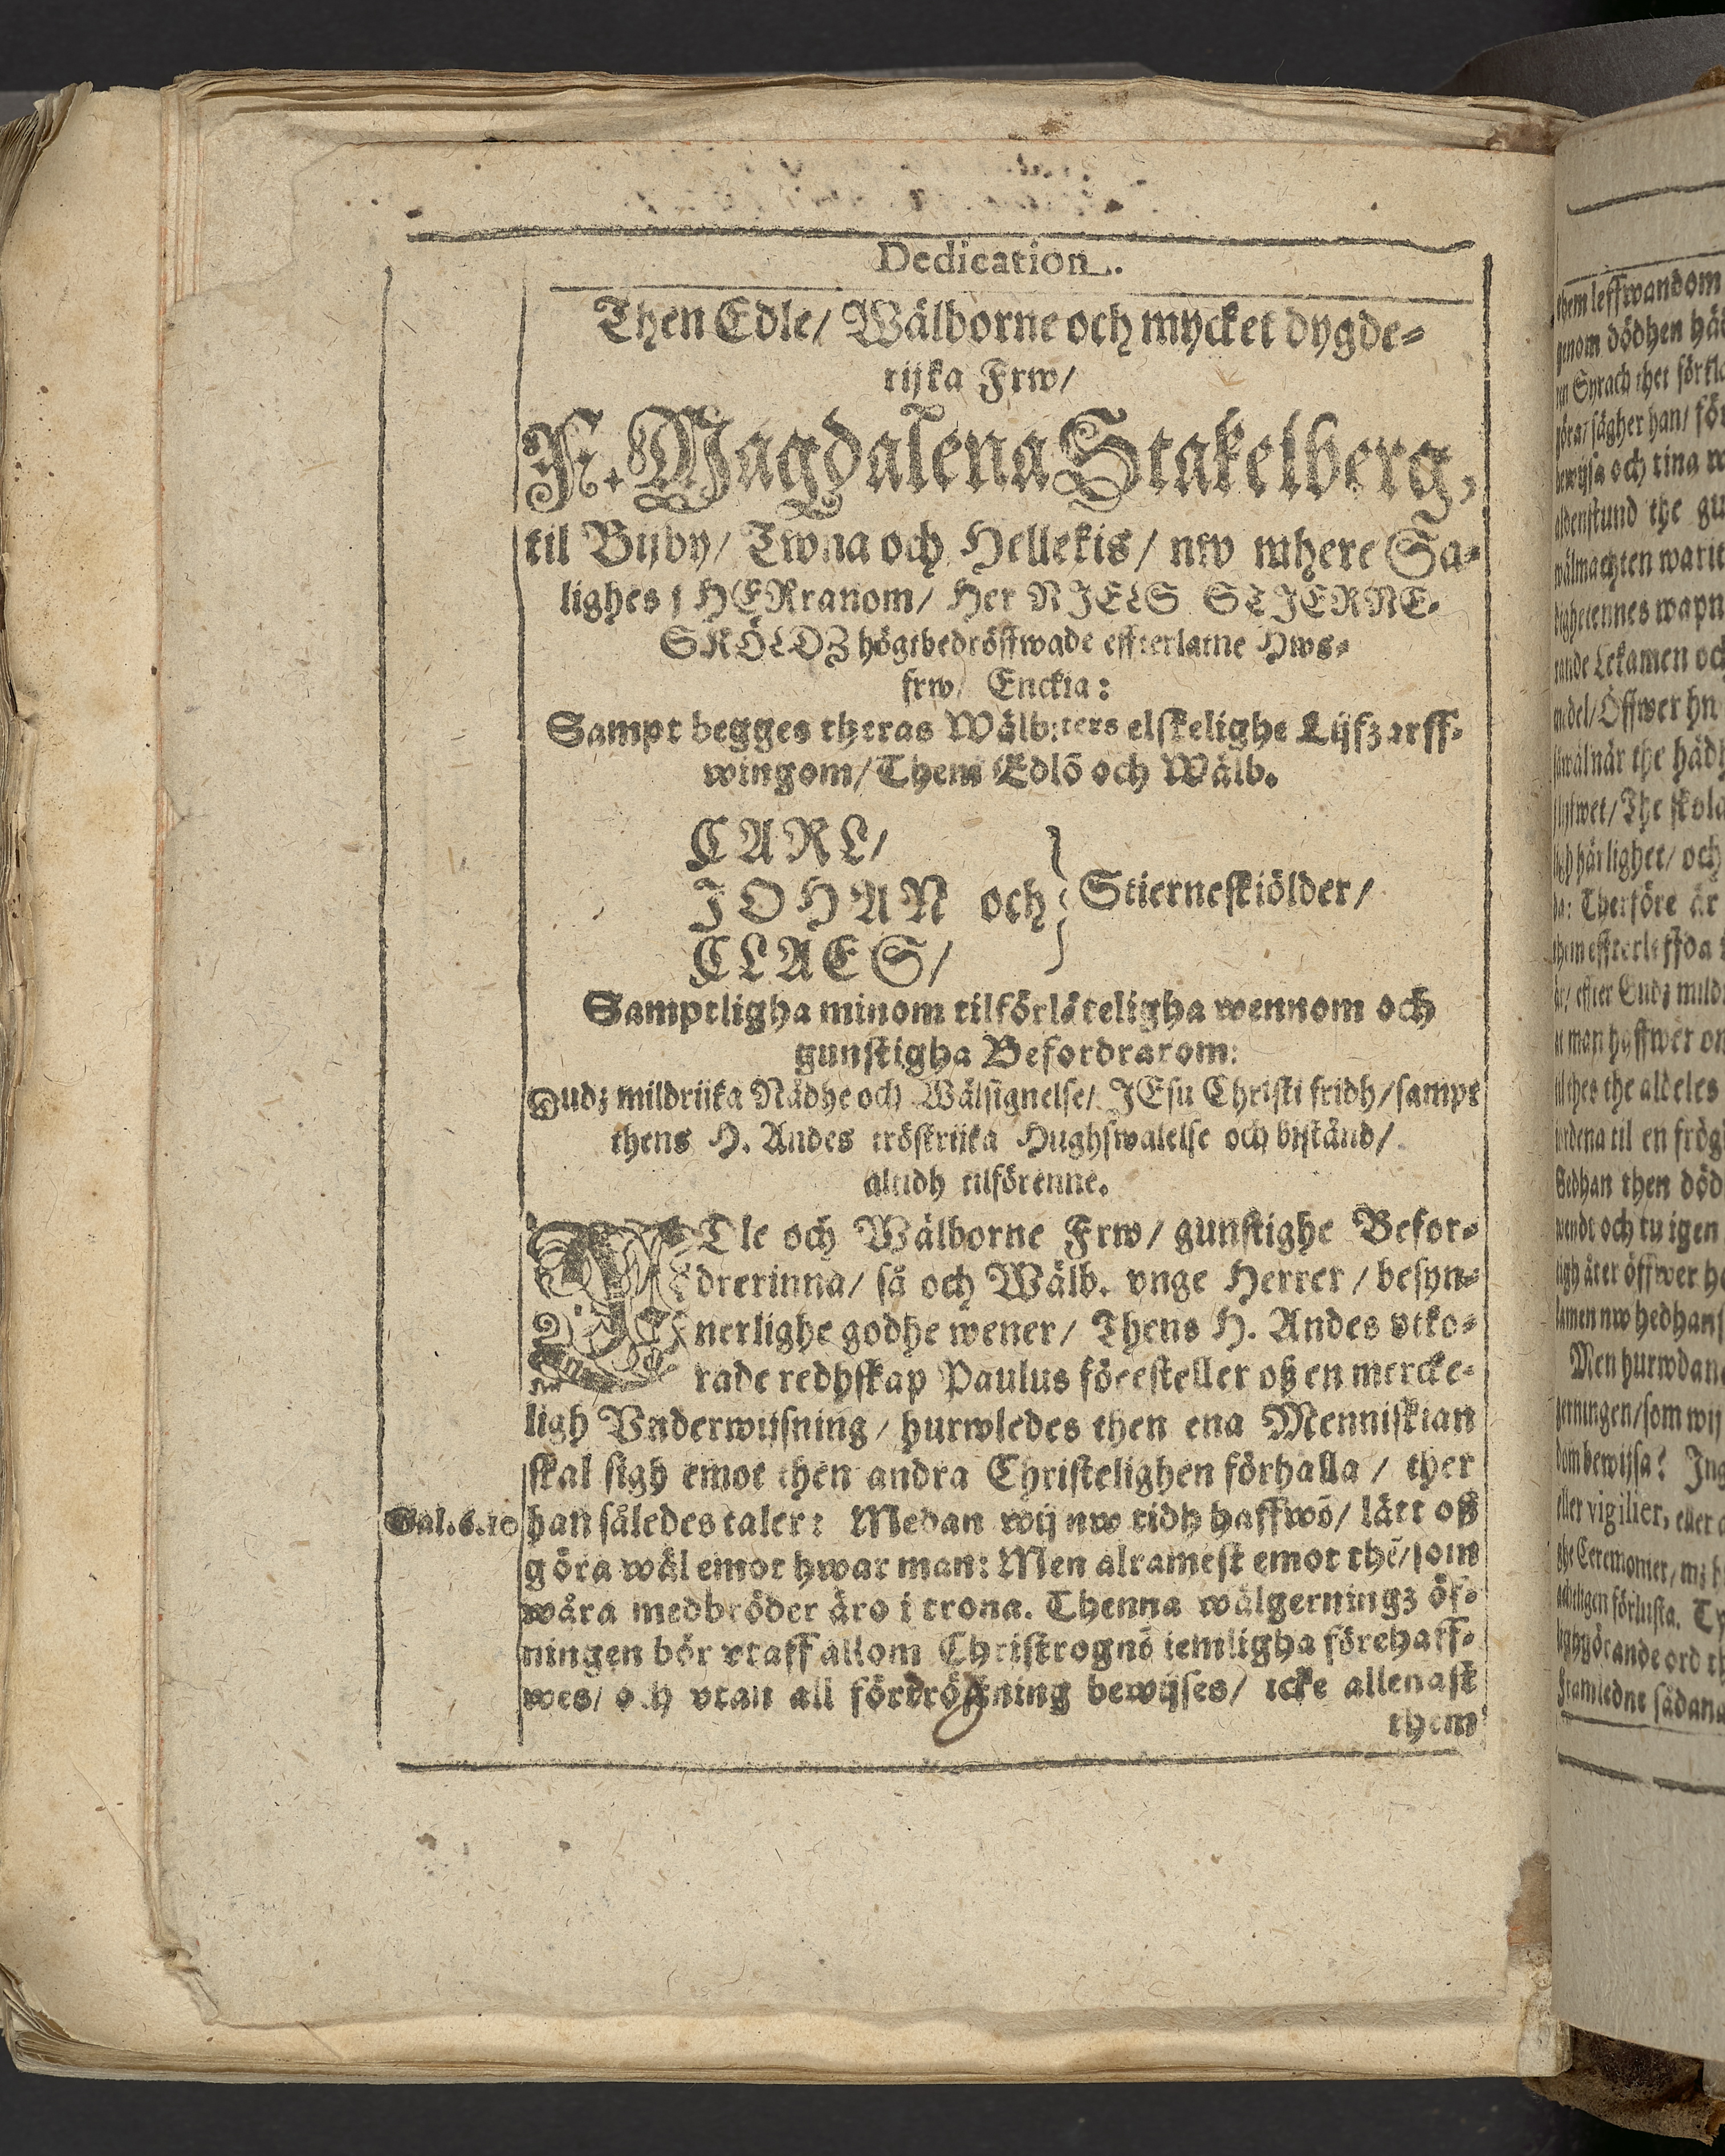 Dedication.
Then Edle/ Wälborne och mycket dygde-
rijka Frw/
F. Magdalena Stakelberg,
til Bijby/ Twna och Hellekis/ nw mhere Sa-
lighes j HERranom/ Her NIELS STIERNE-
SKÖLDZ högtbedröffwade effterlatne Hws-
frw/ Enckia:
Sampt begges theras Wälb:ters elskelighe Lijfzarff-
wingom/ Them Edlō och Wälb.
CARL/
JOHAN och } Stierneskiölder/
CLAES/
Samptligha minom tilförläteligha wennom och
gunstigha Befordrarom:
Gudz mildrijka Nådhe och Wälsignelse/ JEsu Christi fridh/ sampt
thens H. Andes tröstrijka Hughswalelse och bistånd/
altidh tilförenne.
EDle och Wälborne Frw/ gunstighe Befor-
drerinna/ så och Wälb. vnge Herrer/ besyn-
nerlighe godhe wener/ Thens H. Andes vtko-
rade redhskap Paulus föresteller oß en mercke-
ligh Vnderwijsning/ hurwledes then ena Menniskian
skal sigh emot then andra Christelighen förhalla/ ther
Gal.6.10 han således taler: Medan wij nw tidh haffwō/ lätt oß
göra wäl emot hwar man: Men alramest emot thē/ som
wåra medbröder äro i trona. Thenna wälgerningz öf-
ningen bör vtaff allom Christrognō iemligha förehaff-
wes/ och vtan all fördrögning bewijses/ icke allenast
them
them leffwandom
genom dödhen
Syrach thet
sägher han/
bewijsa och tina
aldenstund the
wälmachten warit
wapn
Lekamen och
Öffwer
när the
The skola
härlighet/ och
Therföre är
them
effter Gudz
man haffwer
the aldeles
til en
Sedhan then
wendt och tu igen
åter öffwer
nw hedhans
Men hurwdana
som wij
bewijsa?
eller vigilier, eller
Ceremonier/
förlusta.
ord
Framledne sådana